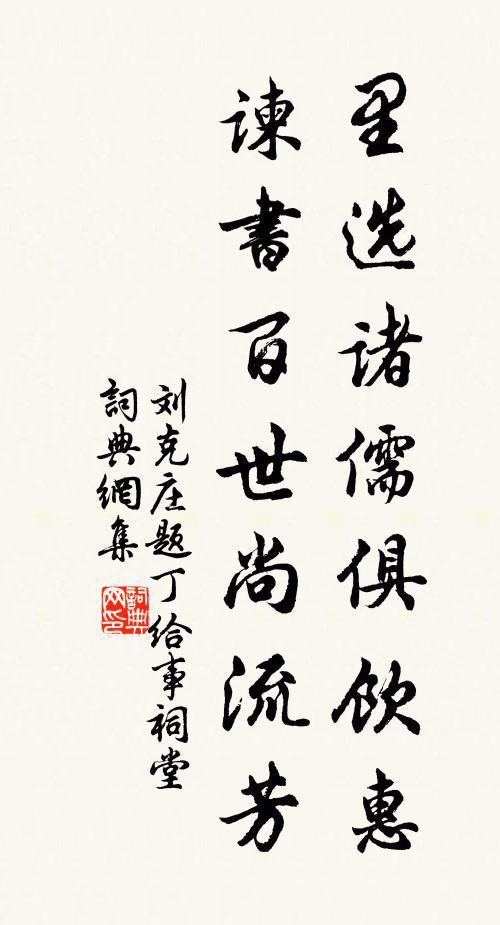 里选诸儒俱饮惠
谏書百世尚流芳
刘克庄题丁给事祠堂
詞典網集
詞典网印